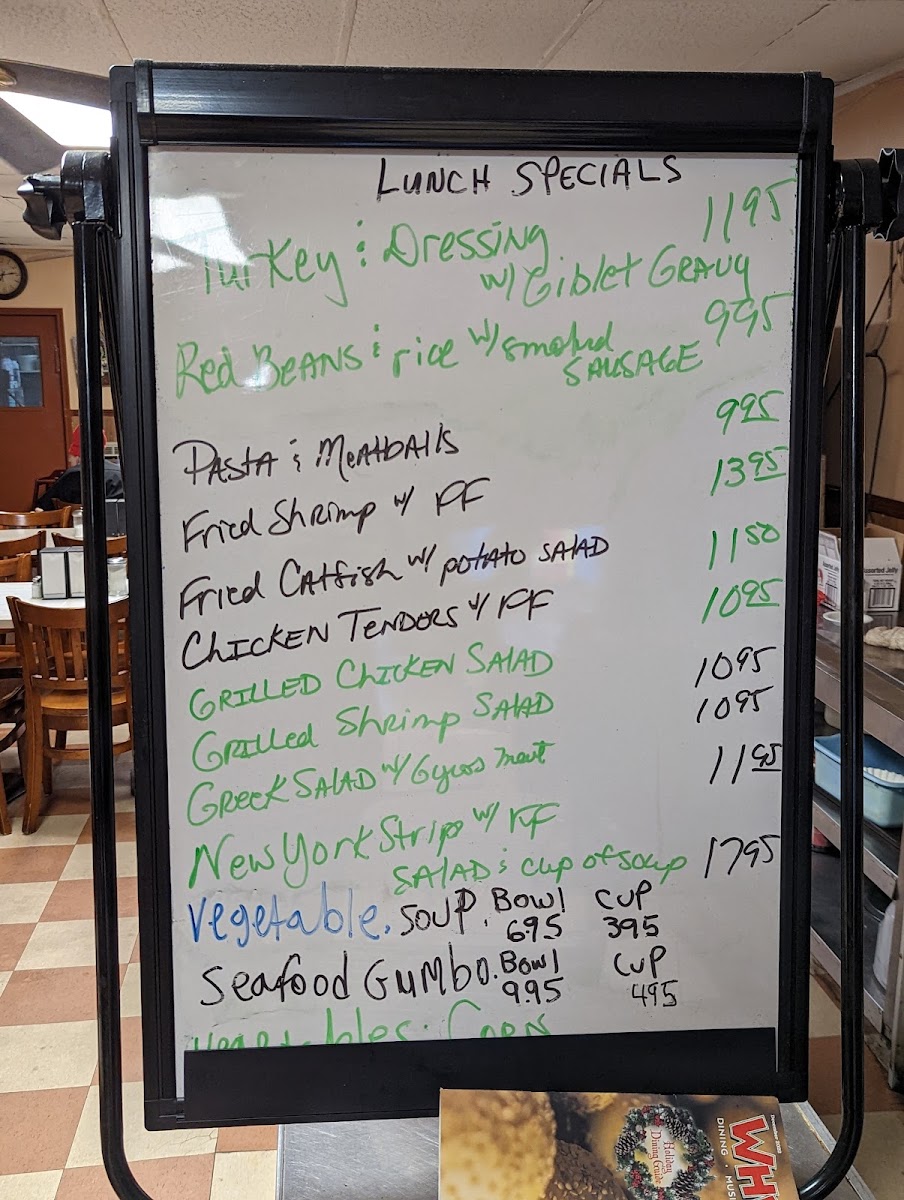 LUNCH SPECIALS
Turkey & Dressing 1195
w/ Giblet GRAVY
Red BEANS & rice w/ smoked 995
SAUSAGE
PASTA & MEATBALLS 995
Fried Shrimp w/ FF 1395
Fried CATfish w/ potato SALAD 1150
CHICKEN TENDERS w/ FF 1095
GRILLED CHICKEN SALAD 1095
GRilled Shrimp SALAD 1095
GREEK SALAD w/ Gyros meat 1195
New York Strip w/ FF
SALAD & cup of soup 1795
Vegetable. SOUP. Bowl CUP
695 395
Seafood GUMBO. Bowl CUP
9.95 495
Vegetables: Corn
Assorted Jelly
Holiday
Dining Guide
WH
DINING · MUS